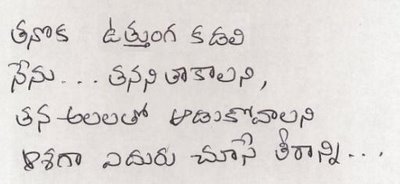 తనొక ఉత్తుంగ కడలి
నేను... తనని తాకాలని,
తన అలలతో ఆడుకోవాలని
ఆశగా ఎదురు చూసే తీరాన్ని...